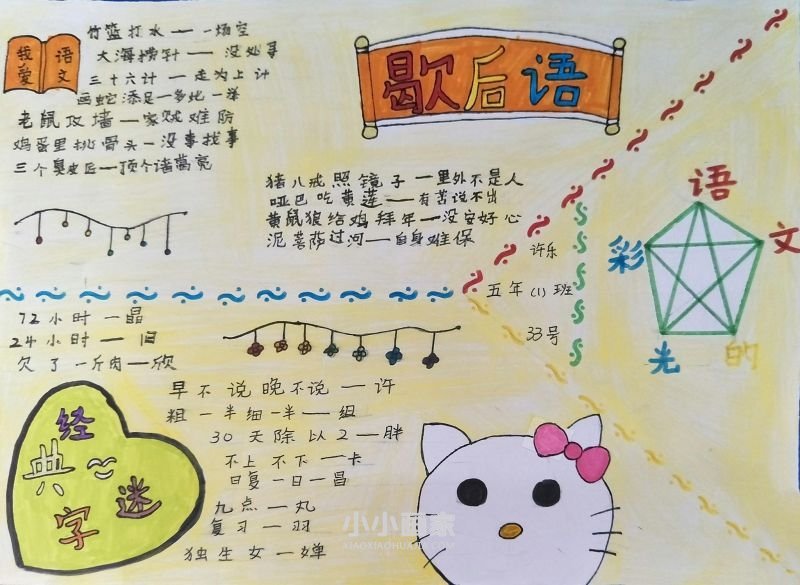 我爱
语文
竹篮打水——一场空
大海捞针——没处寻
三十六计——走为上计
画蛇添足—多此一举
老鼠攻墙——家贼难防
鸡蛋里挑骨头—没事找事
三个臭皮匠—顶个诸葛亮
歇后语
猪八戒照镜子—里外不是人
哑巴吃黄莲——有苦说不出
黄鼠狼给鸡拜年——没安好心
泥菩萨过河——自身难保
许乐
五年(1)班
33号
语
文
彩
光
的
72小时—晶
24小时——旧
欠了一斤肉——欣
经典
字迷
早不说晚不说——许
粗一半细一半——组
30天除以2—胖
不上不下——卡
日复一日—昌
九点—丸
复习—羽
独生女—婵
小小画家
XIAOXIAOHUAJIA.COM